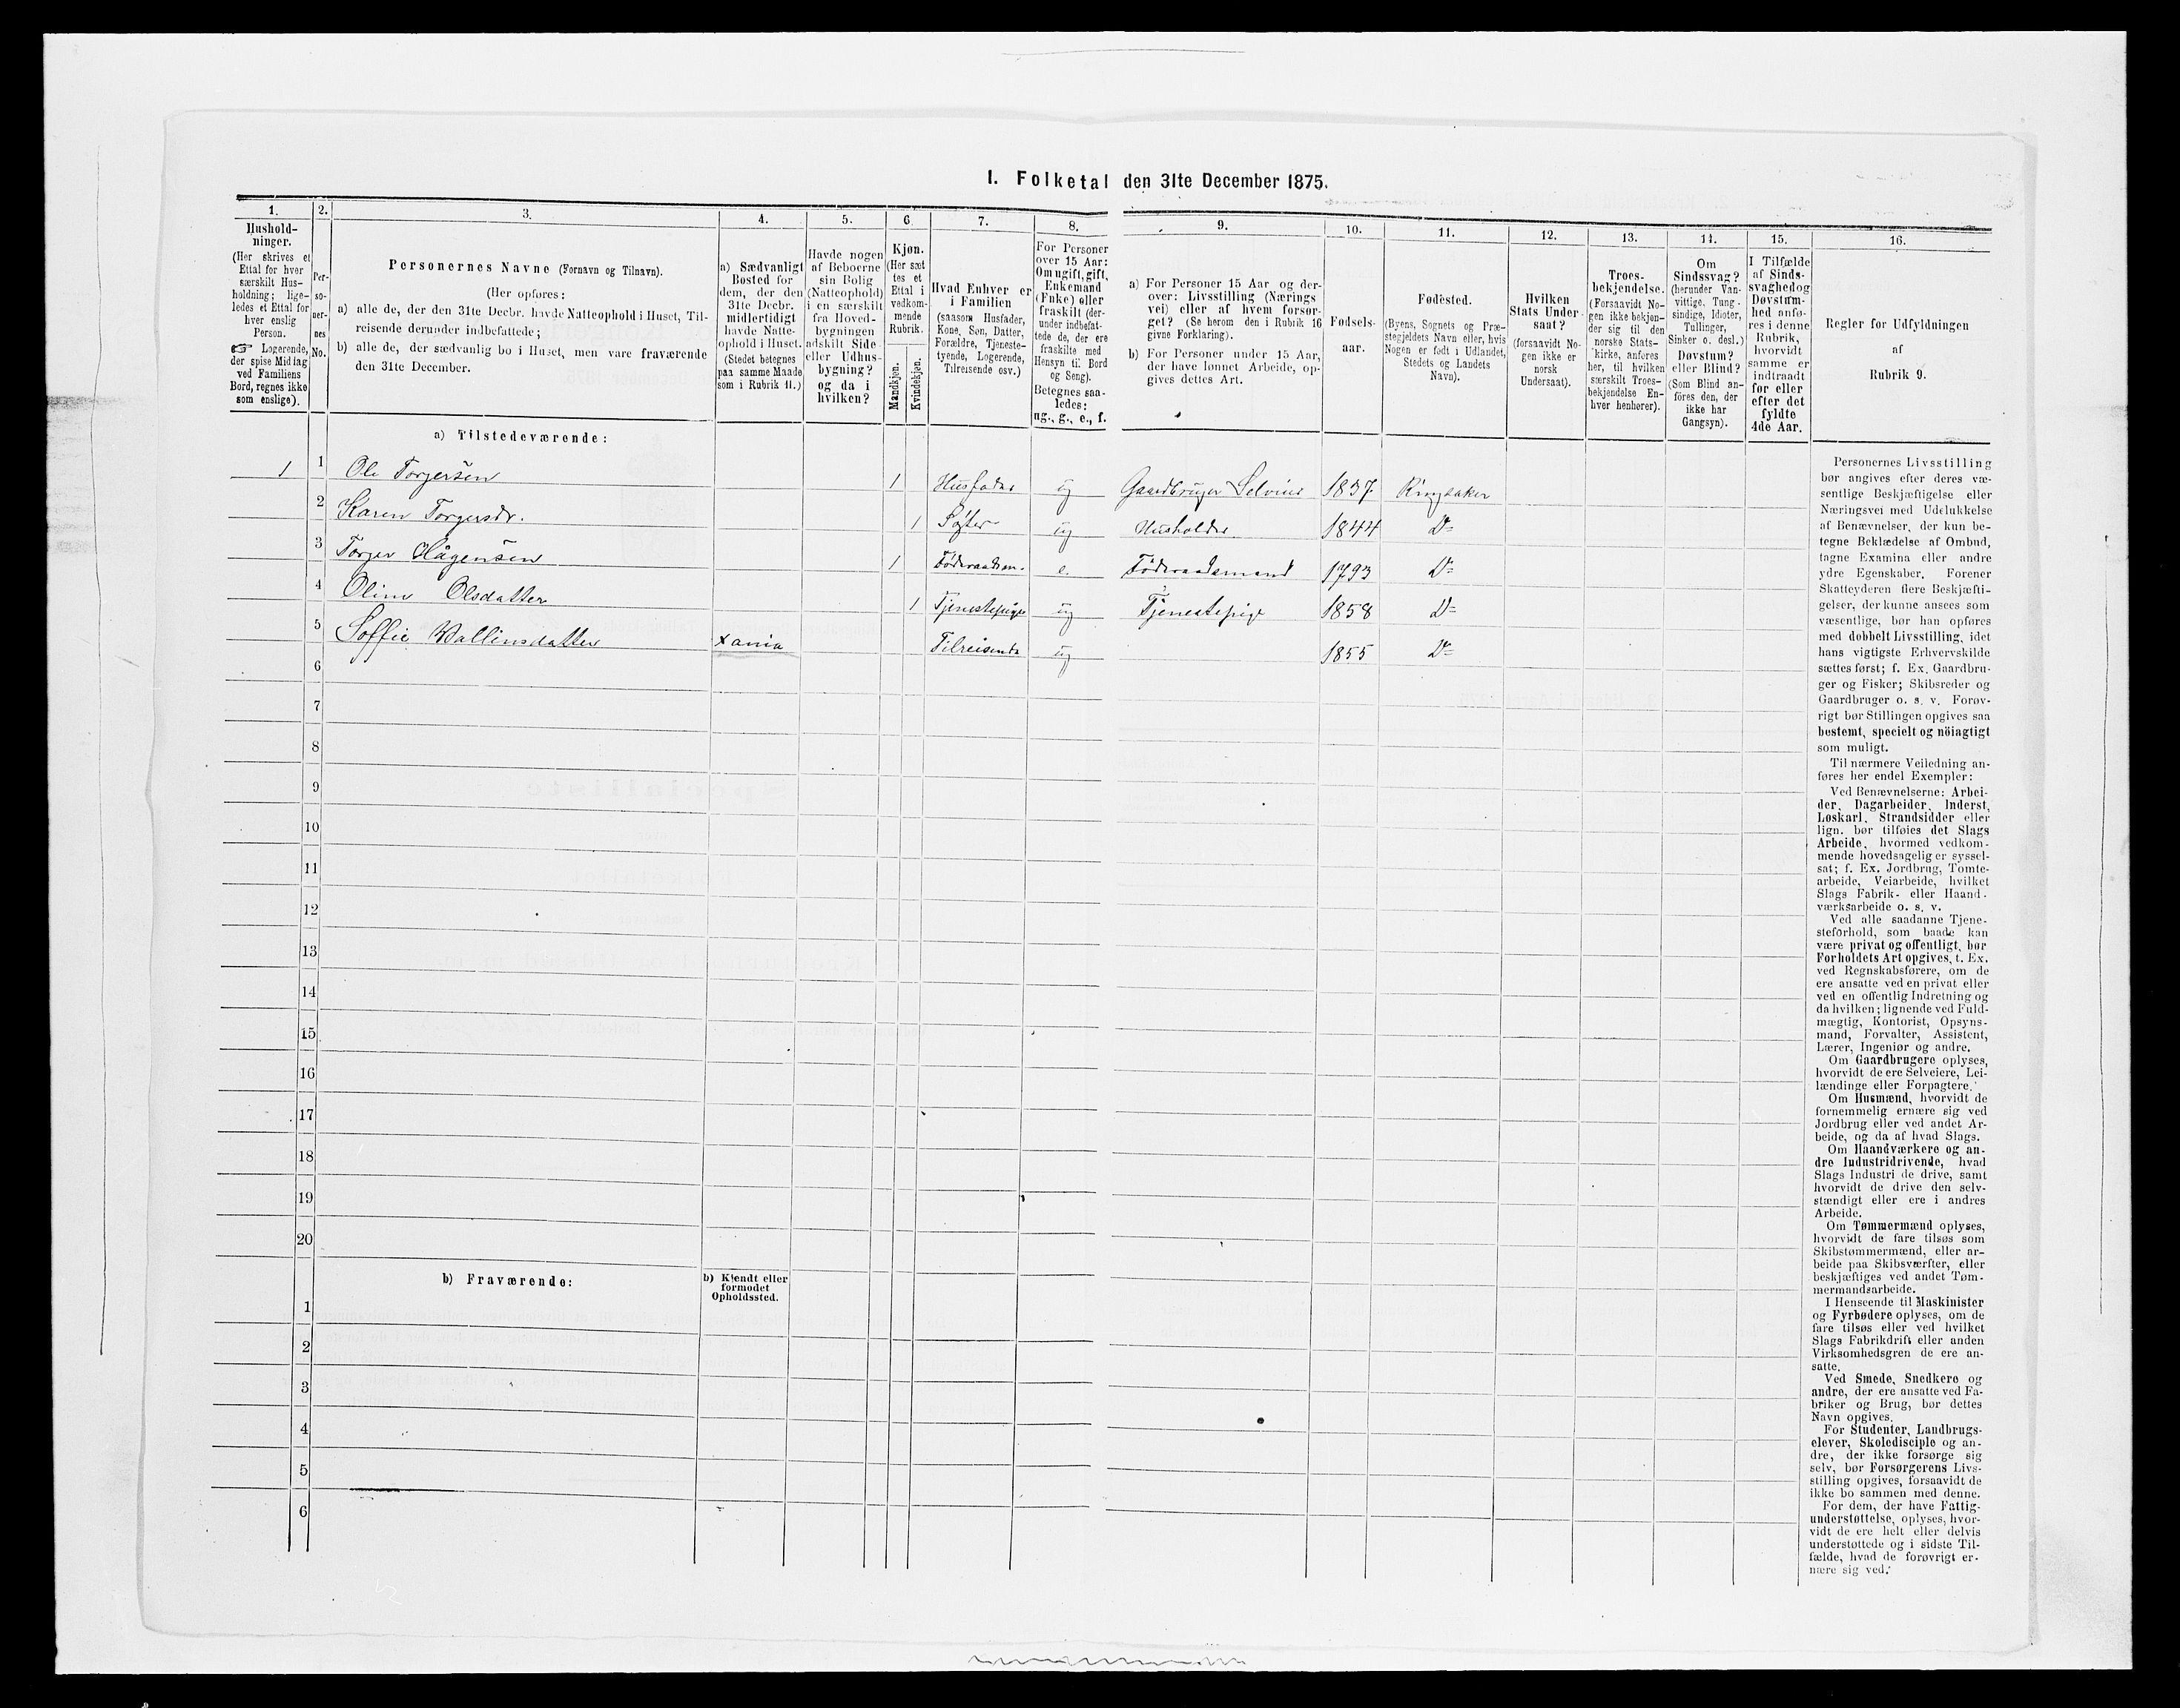 I. Folketal den 31te December 1875.
1.
Hushold-
ninger.
(Her skrives et
Ettal for hver
særskilt Hus-
holdning; lige-
ledes et Ettal for
hver enslig
Person.
☞ Logerende,
der spise Middag
ved Familiens
Bord, regnes ikke
som enslige).
2.
Per-
so-
ner-
nes
No.
3.
Personernes Navne (Fornavn og Tilnavn).
(Her opføres:
a) alle de, der den 31te Decbr. havde Natteophold i Huset, Til-
reisende derunder indbefattede;
b) alle de, der sædvanlig bo i Huset, men vare fraværende
den 31te December.
4.
a) Sædvanligt
Bosted for
dem, der den
31te Decbr.
midlertidigt
havde Natte-
ophold i Huset.
(Stedet betegnes
paa samme Maade
som i Rubrik 11.)
5.
Havde nogen
af Beboerne
sin Bolig
(Natteophold)
i en særskilt
fra Hoved-
bygningen
adskilt Side-
eller Udhus-
bygning?
og da i
hvilken?
6
Kjøn.
(Her sæt
tes et
Ettal i
vedkom-
mende
Rubrik.
Mandkjøn.
Kvindekjøn.
7.
Hvad Enhver er
i Familien
(saasom Husfader,
Kone, Søn, Datter,
Forældre, Tjeneste-
tyende, Logerende,
Tilreisende osv.)
8.
For Personer
over 15 Aar:
Om ugift, gift,
Enkemand
(Enke) eller
fraskilt (der-
under indbefat-
tede de, der ere
fraskilte med
Hensyn til Bord
og Seng).
Betegnes saa-
ledes:
ug., g., e., f.
9.
a) For Personer 15 Aar og der-
over: Livsstilling (Nærings
vei) eller af hvem forsør-
get? (Se herom den i Rubrik 16
givne Forklaring).
b) For Personer under 15 Aar,
der have lønnet Arbeide, op-
gives dettes Art.
10.
Fødsels-
aar.
11.
Fødested.
(Byens, Sognets og Præ-
stegjeldets Navn eller, hvis
Nogen er født i Udlandet,
Stedets og Landets
Navn).
12.
Hvilken
Stats Under-
saat?
(forsaavidt No-
gen ikke er
norsk
Undersaat).
13.
Troes-
bekjendelse.
(Forsaavidt No-
gen ikke bekjen-
der sig til den
norske Stats-
kirke, anføres
her, til hvilken
særskilt Troes-
bekjendelse En-
hver henhører).
14.
Om
Sindssvag?
(herunder Van-
vittige, Tung-
sindige, Idioter,
Tullinger,
Sinker o. desl.)
Døvstum?
eller Blind?
(Som Blind an-
føres den, der
ikke har
Gangsyn).
15.
I Tilfælde
af Sinds-
svaghed og
Døvstum-
hed anfø-
res i denne
Rubrik,
hvorvidt
samme er
indtraadt
før eller
efter det
fyldte
4de Aar.
16.
Regler for Udfyldningen
af
Rubrik 9.
a) Tilstedeværende:
1 1 Ole Torgersen 1 Husfader ug Gaardbruger Selveier 1837 Ringsaker
2 Karen Torgersdr. 1 Søster ug Husholder 1844 Do
3 Torger Hågensen 1 Føderaadsm. e. Føderaadsmand 1793 Do
4 Oline Olsdatter 1 Tjenestepige ug Tjenestepige 1858 Do
5 Soffie Wallinsdatter Xania Tilreisende ug 1855 Do
6
7
8
9
10
11
12
13
14
15
16
17
18
19
20
b) Fraværende:
b) Kjendt eller
formodet
Opholdssted.
1
2
3
4
5
6
Personernes Livsstilling
bør angives efter deres væ-
sentlige Beskjæftigelse eller
Næringsvei med Udelukkelse
af Benævnelser, der kun be-
tegne Beklædelse af Ombud,
tagne Examina eller andre
ydre Egenskaber. Forener
Skatteyderen flere Beskjæfti-
gelser, der kunne ansees som
væsentlige, bør han opføres
med dobbelt Livsstilling, idet
hans vigtigste Erhvervskilde
sættes først; f. Ex. Gaardbru-
ger og Fisker; Skibsreder og
Gaardbruger o. s. v. Forøv-
rigt bør Stillingen opgives saa
bestemt, specielt og nöiagtigt
som muligt.
Til nærmere Veiledning an-
føres her endel Exempler:
Ved Benævnelserne: Arbei-
der, Dagarbeider, Inderst,
Løskarl, Strandsidder eller
lign. bør tilføies det Slags
Arbeide, hvormed vedkom-
mende hovedsagelig er syssel-
sat; f. Ex. Jordbrug, Tomte-
arbeide, Veiarbeide, hvilket
Slags Fabrik- eller Haand-
værksarbeide o. s. v.
Ved alle saadanne Tjene-
steforhold, som baade kan
være privat og offentligt, bør
Forholdets Art opgives, t. Ex.
ved Regnskabsførere, om de
ere ansatte ved en privat eller
ved en offentlig Indretning og
da hvilken; lignende ved Fuld-
mægtig, Kontorist, Opsyns-
mand, Forvalter, Assistent,
Lærer, Ingeniør og andre.
Om Gaardbrugere oplyses,
hvorvidt de ere Selveiere, Lei-
lændinge eller Forpagtere.
Om Husmænd, hvorvidt de
fornemmelig ernære sig ved
Jordbrug eller ved andet Ar-
beide, og da af hvad Slags.
Om Haandværkere og an-
dre Industridrivende, hvad
Slags Industri de drive, samt
hvorvidt de drive den selv-
stændigt eller ere i andres
Arbeide.
Om Tømmermænd oplyses,
hvorvidt de fare tilsøs som
Skibstømmermænd, eller ar-
beide paa Skibsværfter, eller
beskjæftiges ved andet Tøm-
mermandsarbeide.
I Henseende til Maskinister
og Fyrbødere oplyses, om de
fare tilsøs eller ved hvilket
Slags Fabrikdrift eller anden
Virksomhedsgren de ere an-
satte.
Ved Smede, Snedkere og
andre, der ere ansatte ved Fa-
briker og Brug, bør dettes
Navn opgives.
For Studenter, Landbrugs-
elever, Skoledisciple og an-
dre, der ikke forsørge sig
selv, bør Forsørgerens Livs-
stilling opgives, forsaavidt de
ikke bo sammen med denne.
For dem, der have Fattig-
understøttelse, oplyses, hvor-
vidt de ere helt eller delvis
understøttede og i sidste Til-
fælde, hvad de forøvrigt er-
nære sig ved.